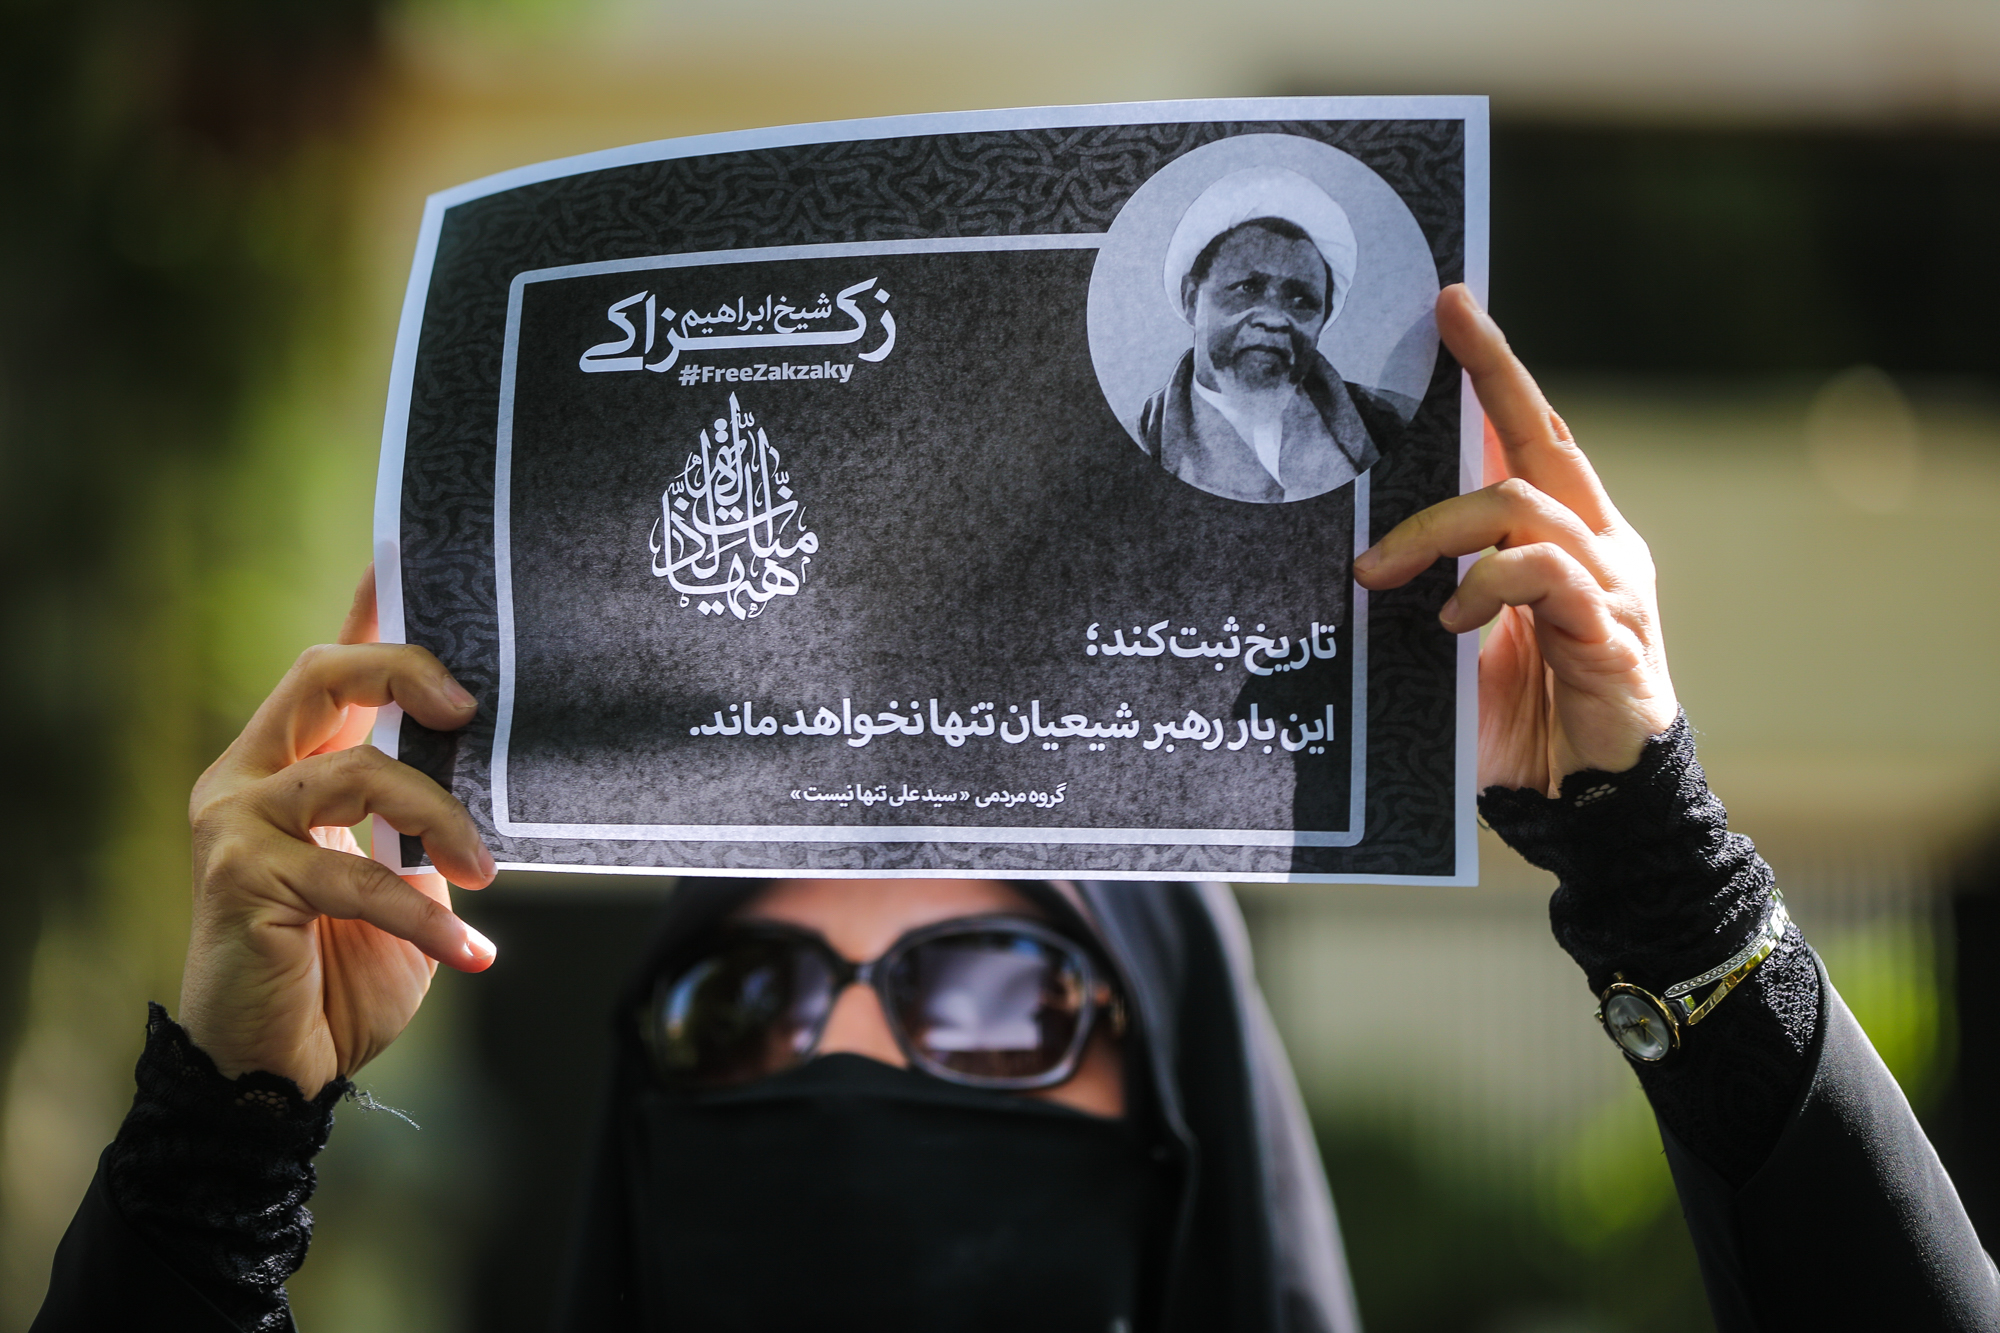 شیخ ابراهیم
زکزاکی
#FreeZakzaky
هیهات منا الذلة
تاریخ ثبت کند؛
این بار رهبر شیعیان تنها نخواهد ماند.
گروه مردمی «سید علی تنها نیست»